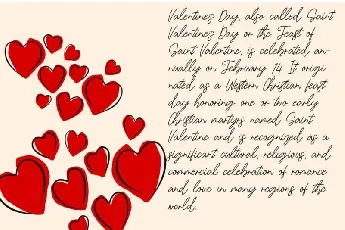 Valentines Day, also called Saint
Valentines Day or the Feast of
Saint Valentine, is celebrated an-
nually on February 14. It origi
nated as a Western Christian feast
day honoring one or two early
Christian martyrs named Saint
Valentine and is recognized as a
significant cultural, religious, and
commercial celebration of romance
and love in many regions of the
world.